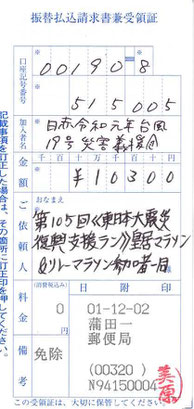 振替払込請求書兼受領証
口座記号番号
00190 8
515005
加入者名
日赤令和元年台風
19号災害義援金
金額
千百十万千百十円
¥10300
ご依頼人
おなまえ
第105回《東日本大震災
復興支援ラン》皇居マラソン
&リレーマラソン参加者一同
料金
(消費税込み)
0 円
備考
免除
日附印
01-12-02
蒲田一
郵便局
(00320)
N94150004
記載事項を訂正した場合は、その箇所に訂正印を押してください。
この受領証は、大切に保管してください。